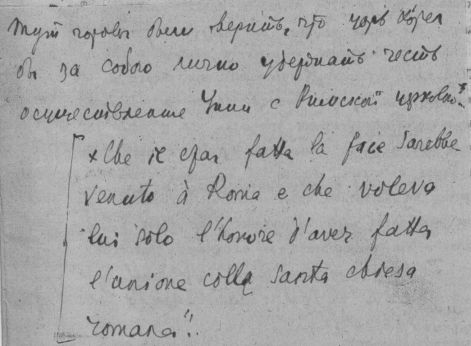 тут готовы были верить, что царь хотел
бы за собою лично удержать честь
осуществления Унии с Римской церковью*.
*Che il czar fatta la face sarebbe
venuto à Roma e che voleva
lui solo l'honore d'aver fatta
l'unione colla santa chiesa
romana".